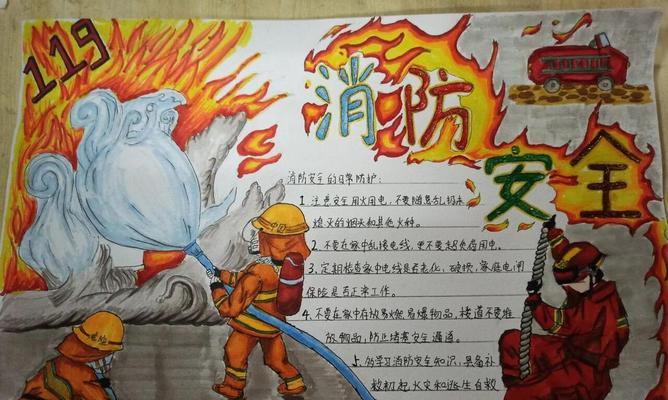 119
消防
安全
消防安全的日常防护:
1. 注意安全用火用电,不要随意乱扔未
熄灭的烟头和其他火种。
2. 不要在家中乱接电线,更不要超负荷用电。
3. 定期检查家中电线是否老化、破损,家庭电闸
保险是否正常工作。
4. 不要在家中存放易燃易爆物品,楼道不要堆
放物品,防止堵塞安全通道。
5. 多学习消防安全知识,具备扑
救初起火灾和逃生自救